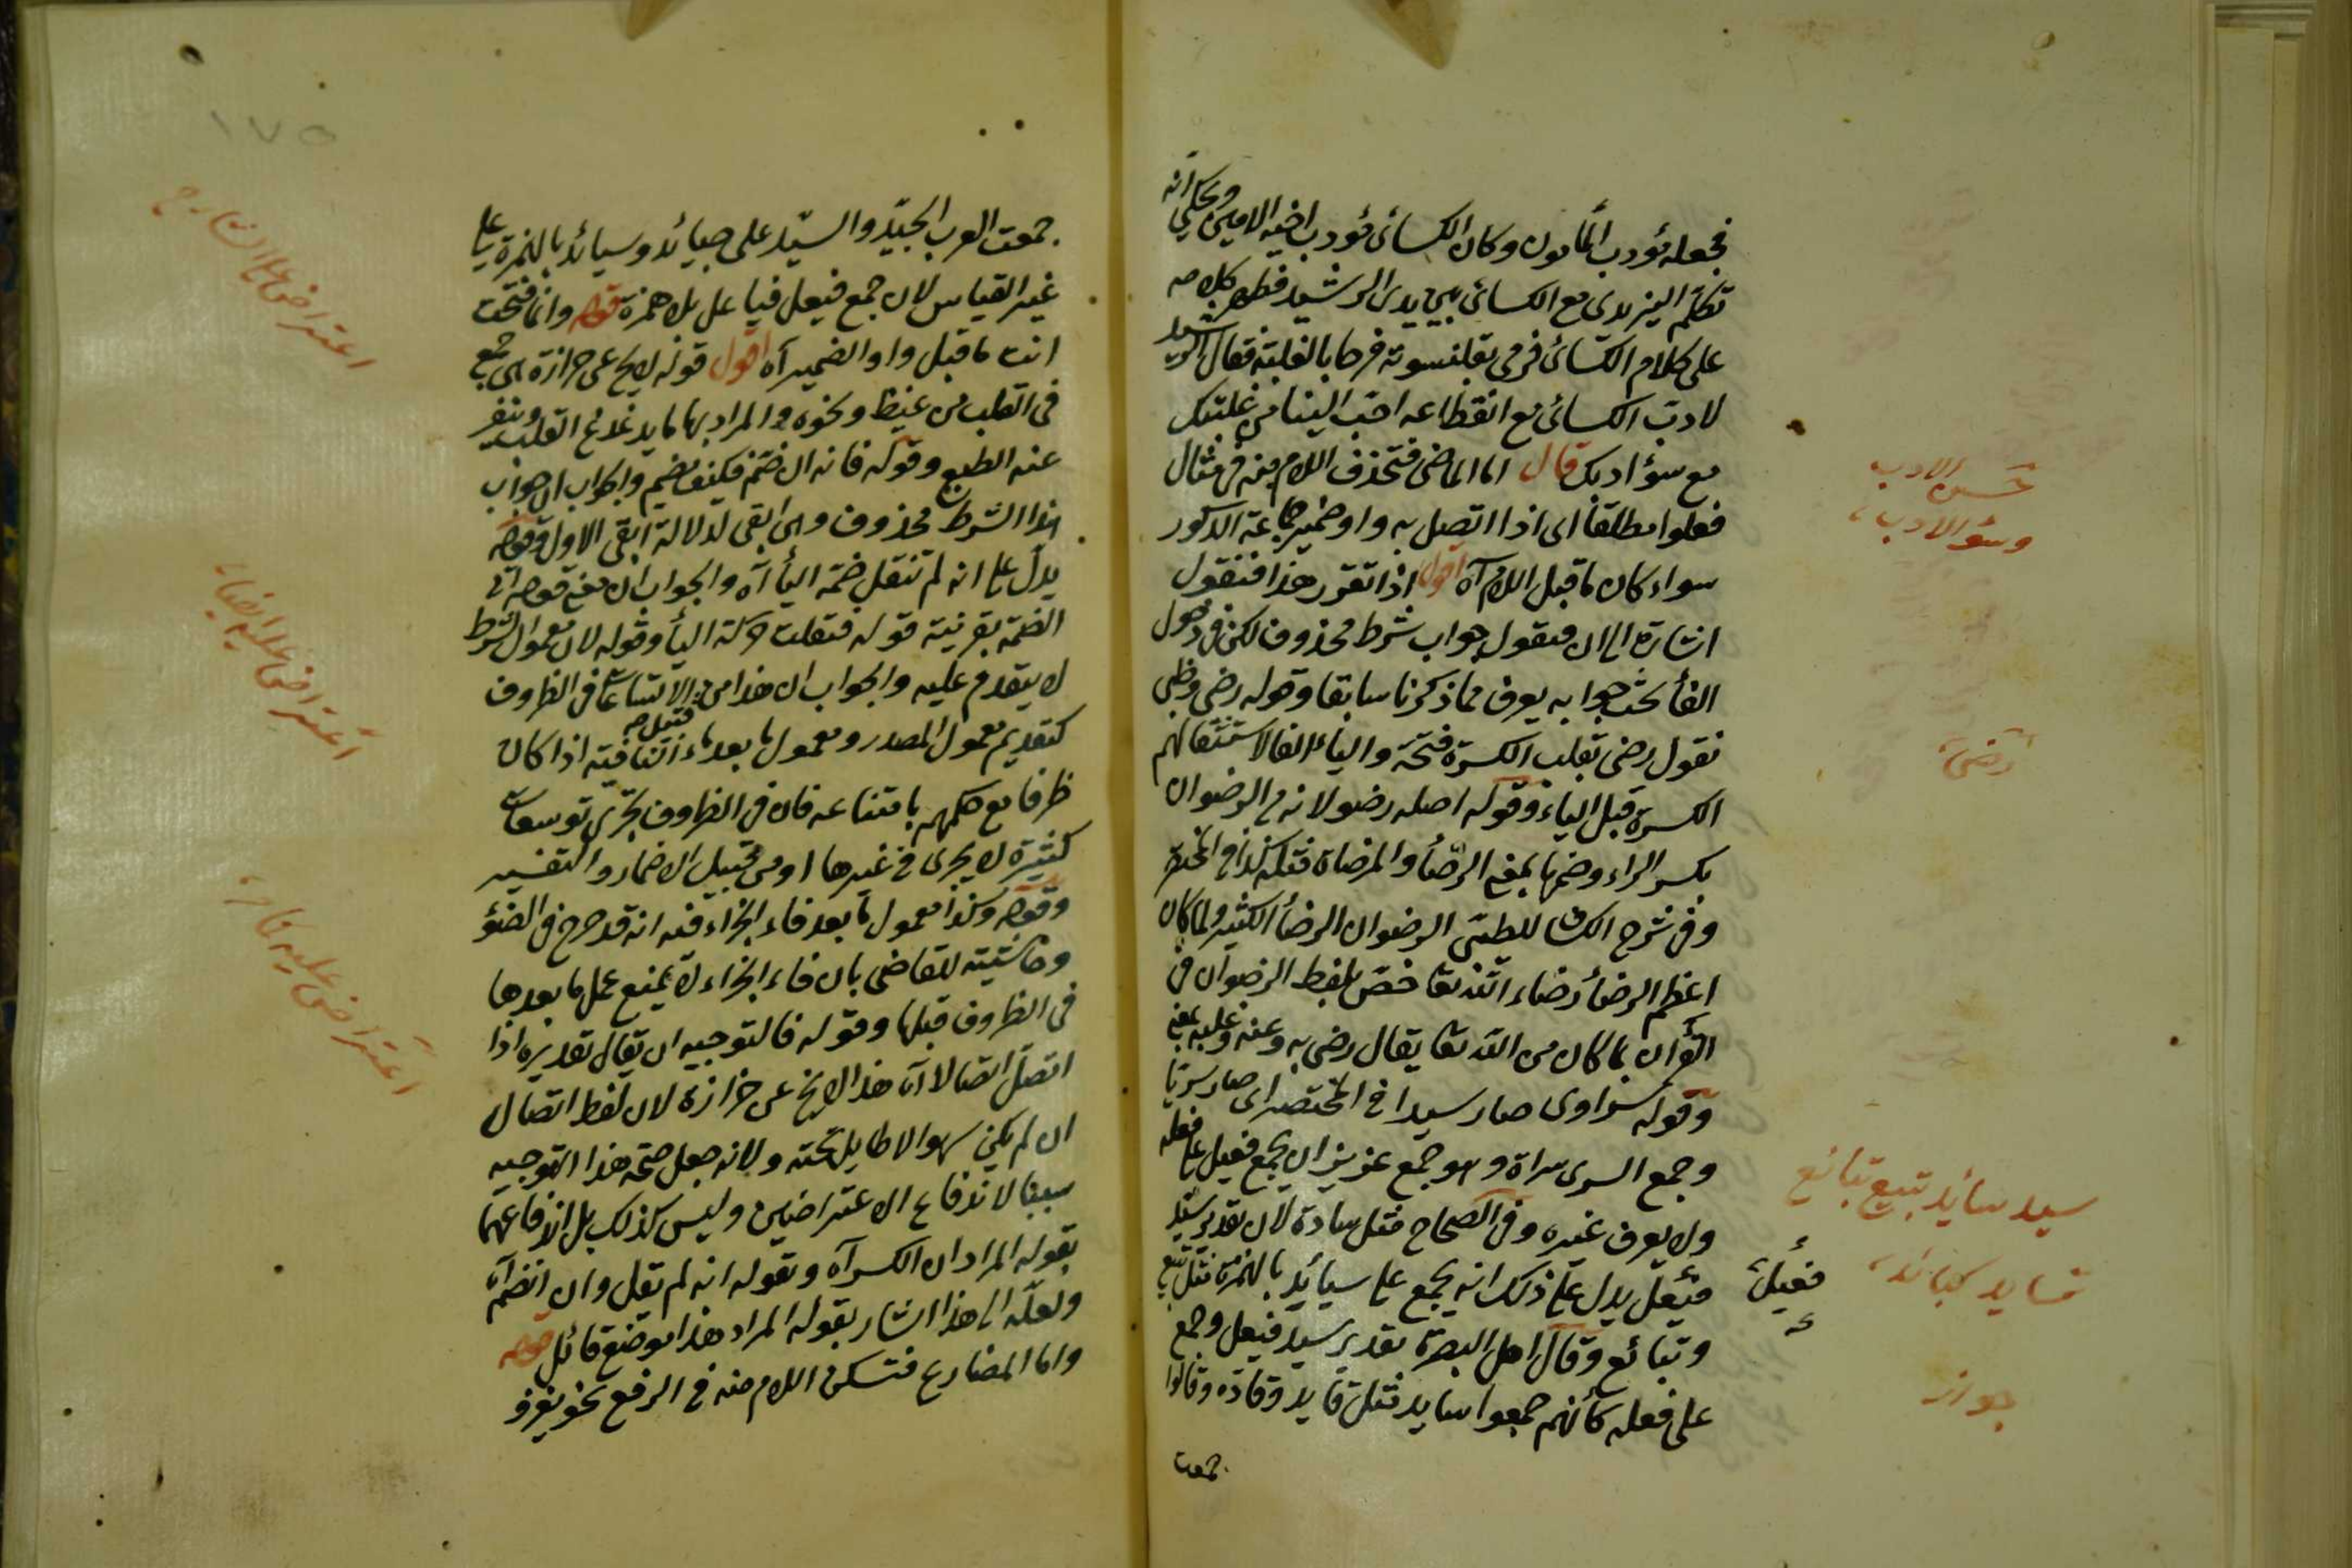 فجعله مؤدب المأمون وكان الكسائى مؤدب اخيه الامين وحكى انه
تكلم اليزيدى مع الكسائى بين يدى الرشيد فظهر كلامه
على كلام الكسائى فرمى بقلنسوته فرحا بالغلبة فقال الرشيد
لادب الكسائى مع انقطاعه احب الينا من غلبتك
مع سؤ ادبك قال اما الماضى فتحذف اللام منه فى مثال
فعلوا مطلقا اى اذا اتصل به واو ضمير جماعة الذكور
سواء كان ما قبل اللام آه اقول اذا تقرر هذا فنقول
اشارة الى ان فنقول جواب شرط محذوف لكن فى دخول
الفأ بحث جوابه يعرف مما ذكرنا سابقا وقوله رضى وطى
نقول رضى بقلب الكسرة فتحة والياء الفا لاستثقالهم
الكسرة قبل الياء وقوله اصله رضو لانه من الرضوان
بكسر الراء وضمها بمعنى الرضأ والمرضاة مثله كذا فى المختصر
وفى شرح الكشاف للطيبى الرضوان الرضأ الكثير ولما كان
اعظم الرضأ رضاء الله تعا خص بلفظ الرضوان فى
القرأن بما كان من الله تعا يقال رضى به وعنه وعليه بمعنى
وقوله سرو اى صار سيدا فى المختصر اى صار سريا
وجمع السرى سراة وهو جمع عزيز ان يجمع فعيل على فعلة
ولا يعرف غيره وفى الصحاح مثل سادة لان تقدير سيد
فعيل يدل على ذلك انه يجمع على سيائد بالهمزة مثل تبيع
وتبائع وقال اهل البصرة تقدير سيد فيعل وجمع
على فعلة كأنهم جمعوا سايد مثل قايد وقادة وقالوا
جمعت
حسن الادب
وسؤ الادب
رضى
سيد سائد تبيع تبائع
فعيل
جمعت العرب الجيد والسيد على جيائد وسيائد بالهمزة على
غير القياس لان جمع فيعل فياعل بلا همزة قوله وانما فتحت
انت ما قبل واو الضمير آه اقول قوله لا يخ عن حزازة هى جمع
فى القلب من غيظ ونحوه والمراد بها ما يدغدغ القلب وينفر
عنه الطبع وقوله فانه ان ضم فكيف يضم والجواب ان جواب
هذا الشرط محذوف وهى ابقى لدلالة ابقى الاول وقوله
يدل على انه لم تنقل ضمة اليأ آه والجواب ان معنى قوله اى
الضمة بقرينة قوله فنقلت حركة اليأ وقوله لان معمول الشرط
لا يتقدم عليه والجواب ان هذا من الاتساعات فى الظروف
كتقديم معمول المصدر ومعمول ما بعد ماء النافية اذا كان
ظرفا مع حكمهم بامتناعه فان فى الظروف يجرى توسعات
كثيرة لا يجرى فى غيرها او من قبيل الاضمار والتفسير
وقوله وكذا معمول ما بعد فاء الجزاء فيه انه قد صرح فى الضؤ
وحاشيته للقاضى بان فاء الجزاء لا يمنع عمل ما بعدها
فى الظروف قبلها وقوله فالتوجيه ان يقال تقديره اذا
اتصل اتصالا آه هذا لا يخ عن حزازة لان لفظ اتصالا
ان لم يكن سهوا لا طايل تحته ولانه جعل صحة هذا التوجيه
سببا لاندفاع الاعتراضين وليس كذلك بل اندفاعهما
بقوله المراد ان الكسر آه وبقوله انه لم يقل وان انضم آه
ولعله الى هذا اشار بقوله المراد هذا موضع تأمل قوله
واما المضارع فتسكن اللام منه فى الرفع نحو يغزو
اعتراض على الشارح
اعتراض عليه ايضا
اعتراض عليه
١٧٥